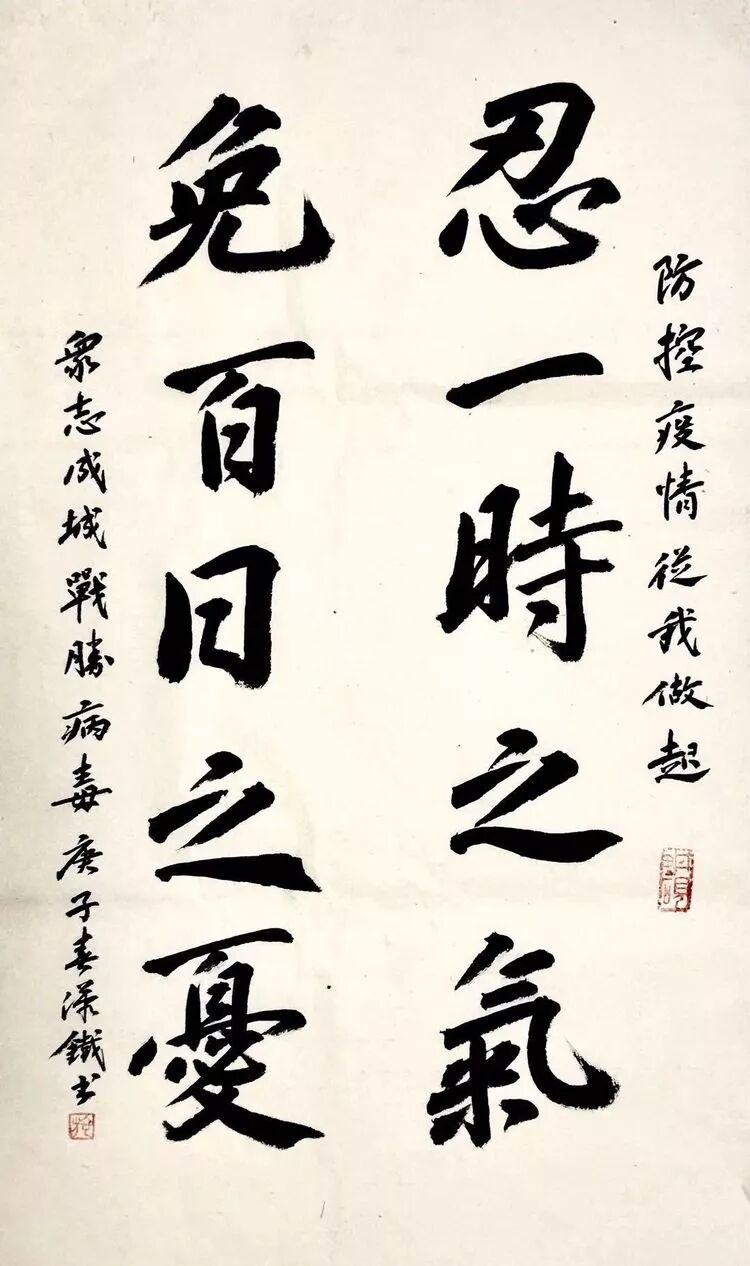 防控疫情從我做起
忍一時之氣
免百日之憂
衆志成城戰勝病毒庚子春漢鐵书